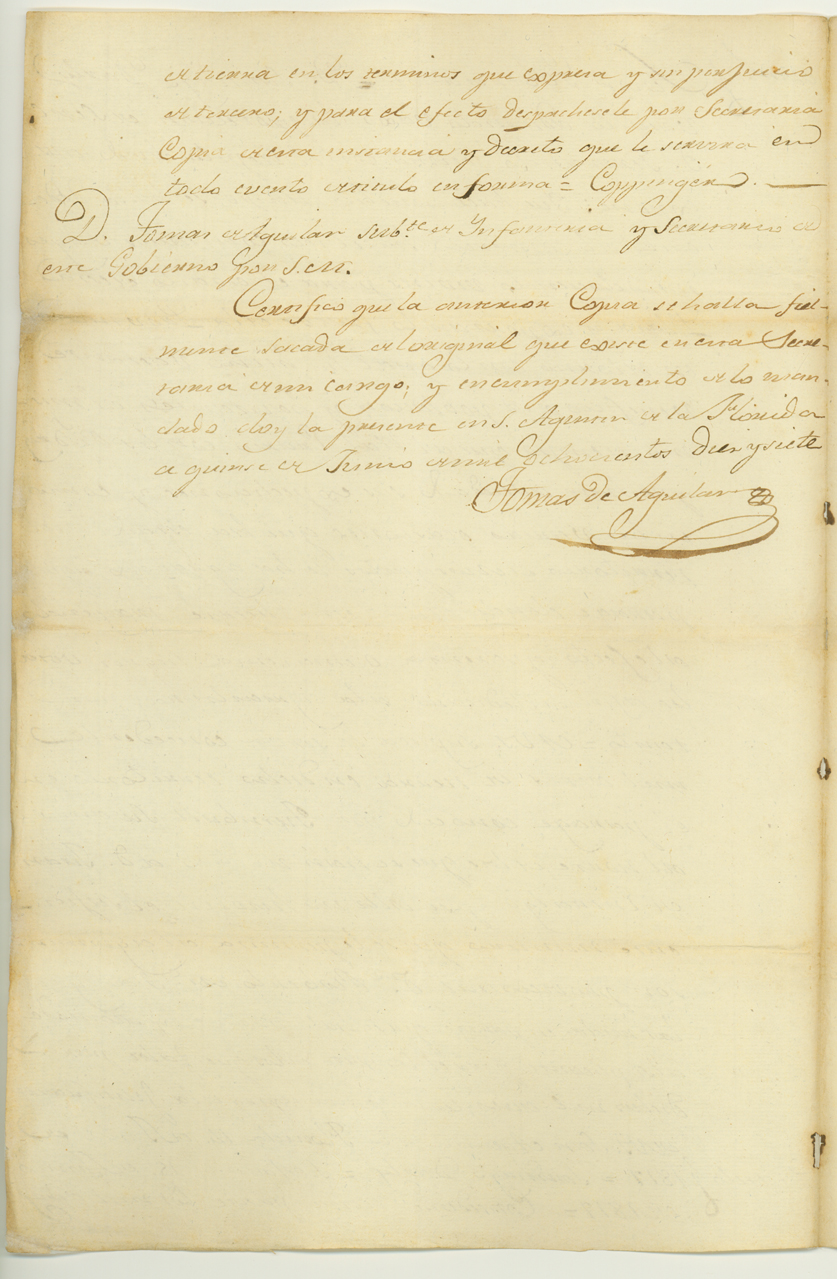 de tierra en los terminos que expresa y sin perjuicio
de tercero; y para el efecto despachesele por Secretaria
Copia de esta instancia y decreto que le servira en
todo evento de titulo en forma = Coppinger.
D. Tomas de Aguilar subte. de Infanteria y Secretario de
este Gobierno por S. M.
Certifico que la anterior Copia se halla fiel-
mente sacada del original que existe en esta Secre-
taria de mi cargo; y en cumplimiento de lo man-
dado doy la presente en S. Agustin de la Florida
a quinse de Junio de mil ochocientos diez y siete
Tomas de Aguilar